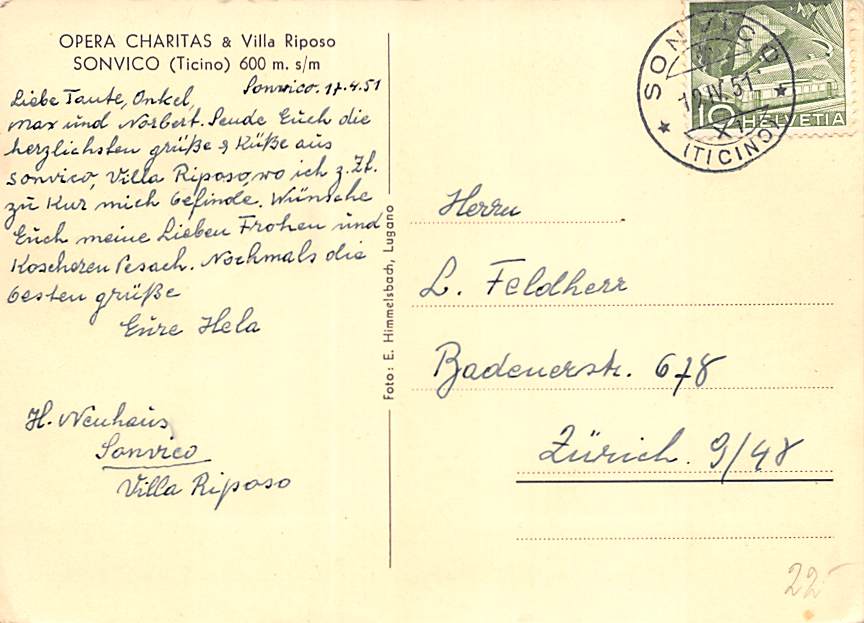 OPERA CHARITAS & Villa Riposo
SONVICO (Ticino) 600 m. s/m
Sonvico. 17.4.51
Liebe Tante, Onkel,
Max und Norbert. Sende Euch die
herzlichsten grüße & Küße aus
Sonvico, Villa Riposo, wo ich z. Zt.
zu Kur mich befinde. Wünsche
Euch meine Lieben Frohen und
Koscheren Pesach. Nochmals die
besten grüße
Eure Hela
H. Neuhaus
Sonvico
Villa Riposo
Foto: E. Himmelsbach, Lugano
SONVICO
IV.51
(TICINO)
10 HELVETIA
Herrn
L. Feldherr
Badenerstr. 678
Zürich. 9/48
22-